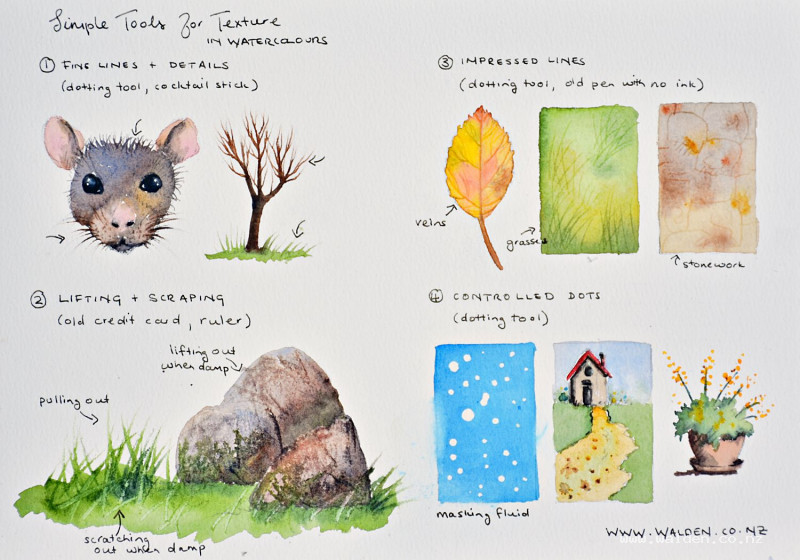 Simple Tools for Texture
IN WATERCOLOURS
① FINE LINES + DETAILS
(dotting tool, cocktail stick)
② LIFTING + SCRAPING
(old credit card, ruler)
lifting out
when damp
pulling out
scratching
out when damp
③ IMPRESSED LINES
(dotting tool, old pen with no ink)
veins
grasses
stonework
④ CONTROLLED DOTS
(dotting tool)
masking fluid
WWW.WALDEN.CO.NZ
www.walden.co.nz